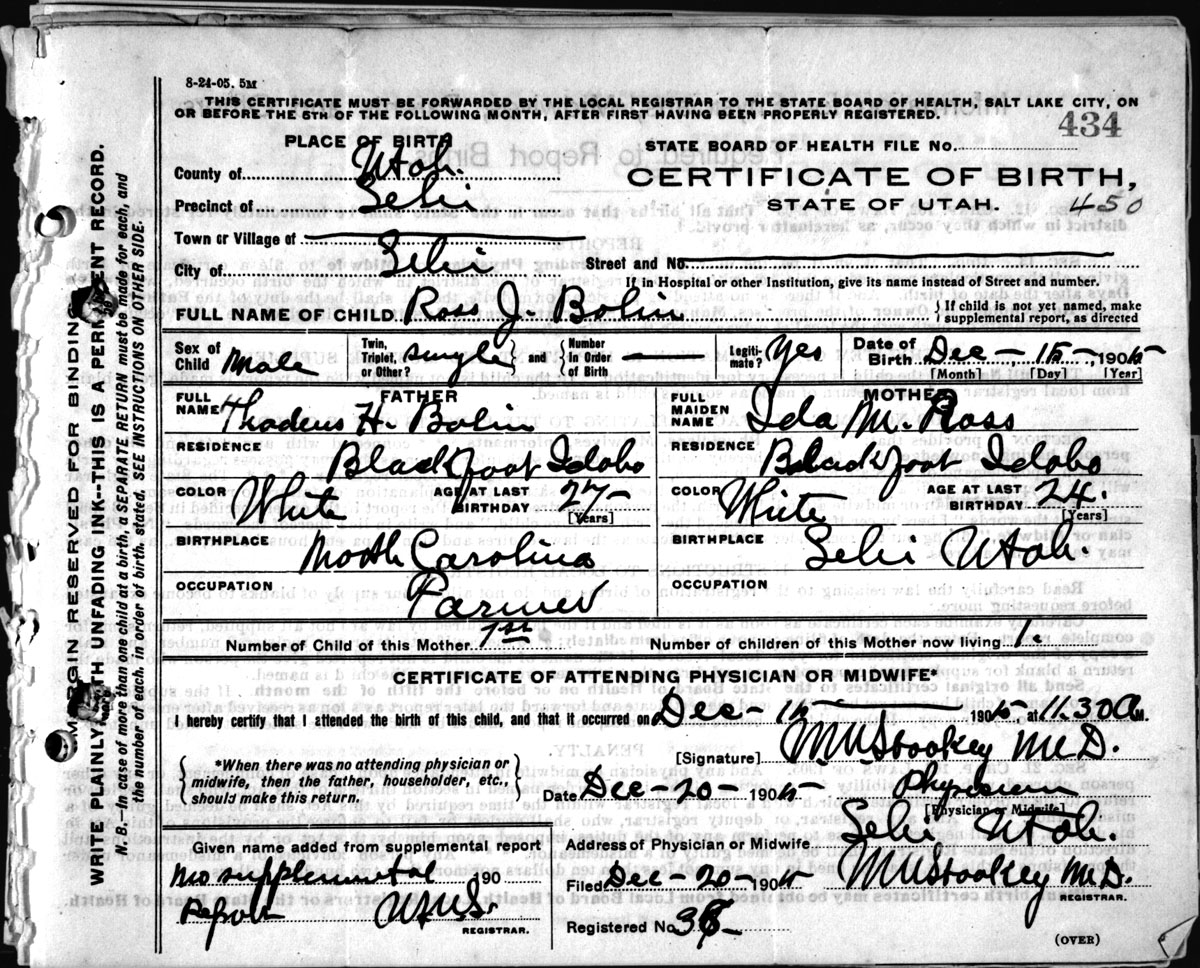 8-24-05. 5M
THIS CERTIFICATE MUST BE FORWARDED BY THE LOCAL REGISTRAR TO THE STATE BOARD OF HEALTH, SALT LAKE CITY, ON
OR BEFORE THE 5TH OF THE FOLLOWING MONTH, AFTER FIRST HAVING BEEN PROPERLY REGISTERED.
434
PLACE OF BIRTH
STATE BOARD OF HEALTH FILE No.
County of Utah.
CERTIFICATE OF BIRTH,
Precinct of Lehi
STATE OF UTAH. 450
Town or Village of
City of Lehi
Street and No.
If in Hospital or other Institution, give its name instead of Street and number.
FULL NAME OF CHILD Ross J. Bolin
{If child is not yet named, make
supplemental report, as directed
Sex of Child Male
Twin, Triplet, or Other? single and {Number in Order of Birth
Legiti-mate? Yes
Date of Birth Dec - 15 - 1905
[Month] [Day] [Year]
FATHER
FULL NAME Thadeus H. Bolin
MOTHER
FULL MAIDEN NAME Ida M. Ross
RESIDENCE Blackfoot Idaho
RESIDENCE Blackfoot Idaho
COLOR White AGE AT LAST BIRTHDAY 27 - [Years]
COLOR White AGE AT LAST BIRTHDAY 24. [Years]
BIRTHPLACE North Carolina
BIRTHPLACE Lehi Utah.
OCCUPATION Farmer
OCCUPATION
Number of Child of this Mother 1st
Number of children of this Mother now living 1
CERTIFICATE OF ATTENDING PHYSICIAN OR MIDWIFE*
I hereby certify that I attended the birth of this child, and that it occurred on Dec - 15 1905, at 11.30 A M.
[Signature] M.D.
{*When there was no attending physician or
midwife, then the father, householder, etc.,
should make this return.}
Date Dec - 20 - 1905 Physician
[Physician or Midwife]
Address of Physician or Midwife Lehi Utah.
Given name added from supplemental report
No supplemental 190
Report
REGISTRAR.
Filed Dec - 20 - 1905 M.D.
REGISTRAR.
Registered No.
(OVER)
MARGIN RESERVED FOR BINDING
WRITE PLAINLY WITH UNFADING INK--THIS IS A PERMANENT RECORD.
N. B.—In case of more than one child at a birth, a SEPARATE RETURN must be made for each, and
the number of each, in order of birth, stated. SEE INSTRUCTIONS ON OTHER SIDE.